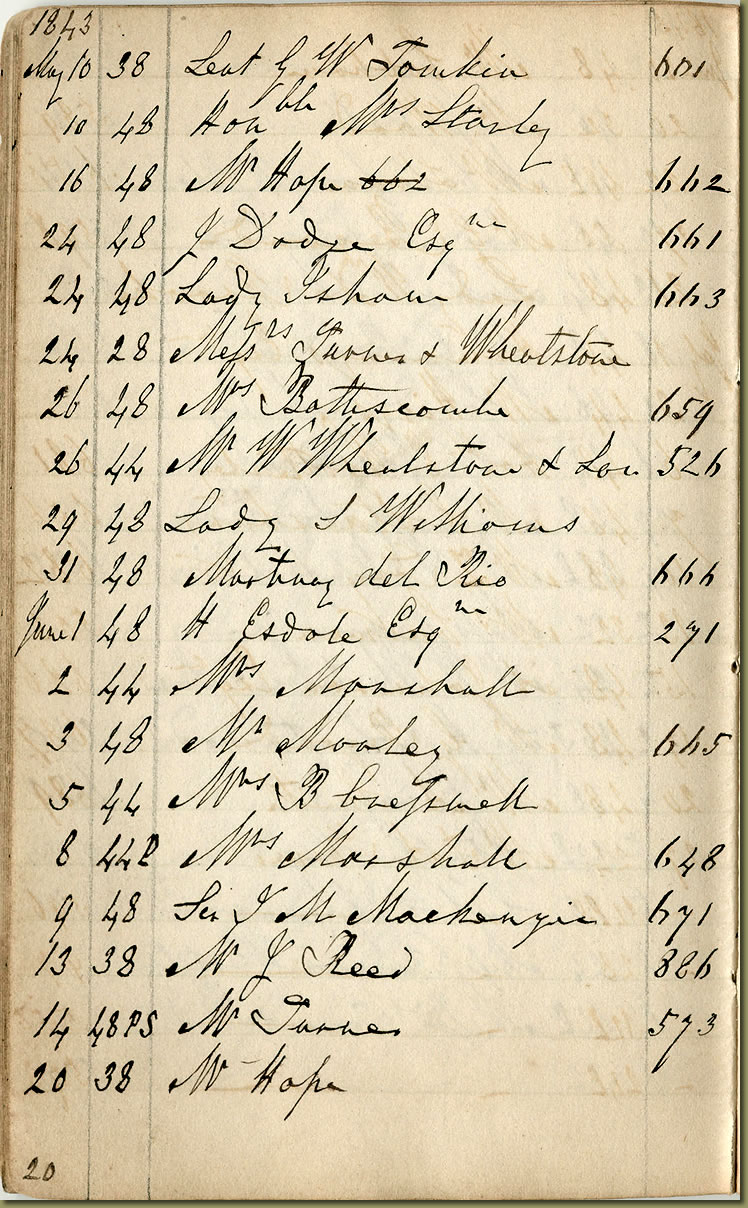 1843
May 10 38 Leut G W Tomkin 601
10 48 Honble Mrs Stanley
16 48 Mr Hope 662 662
24 48 J Dodge Esqre 661
24 48 Lady Isham 663
24 28 Messrs Turner & Wheatstone
26 48 Mrs Battiscombe 659
26 44 Mr W Wheatstone & Son 526
29 48 Lady S Williams
31 28 del Rio 666
June 1 48 H Esdale Esqre 271
2 44 Mrs Marshall
3 48 Mr Morley 665
5 44 Mrs B Cresswell
8 44P Mrs Marshall 648
9 48 Sir J M Mackenzie 671
13 38 Mr J Reed 886
14 48PS Mr Turner 573
20 38 Mr Hope
20